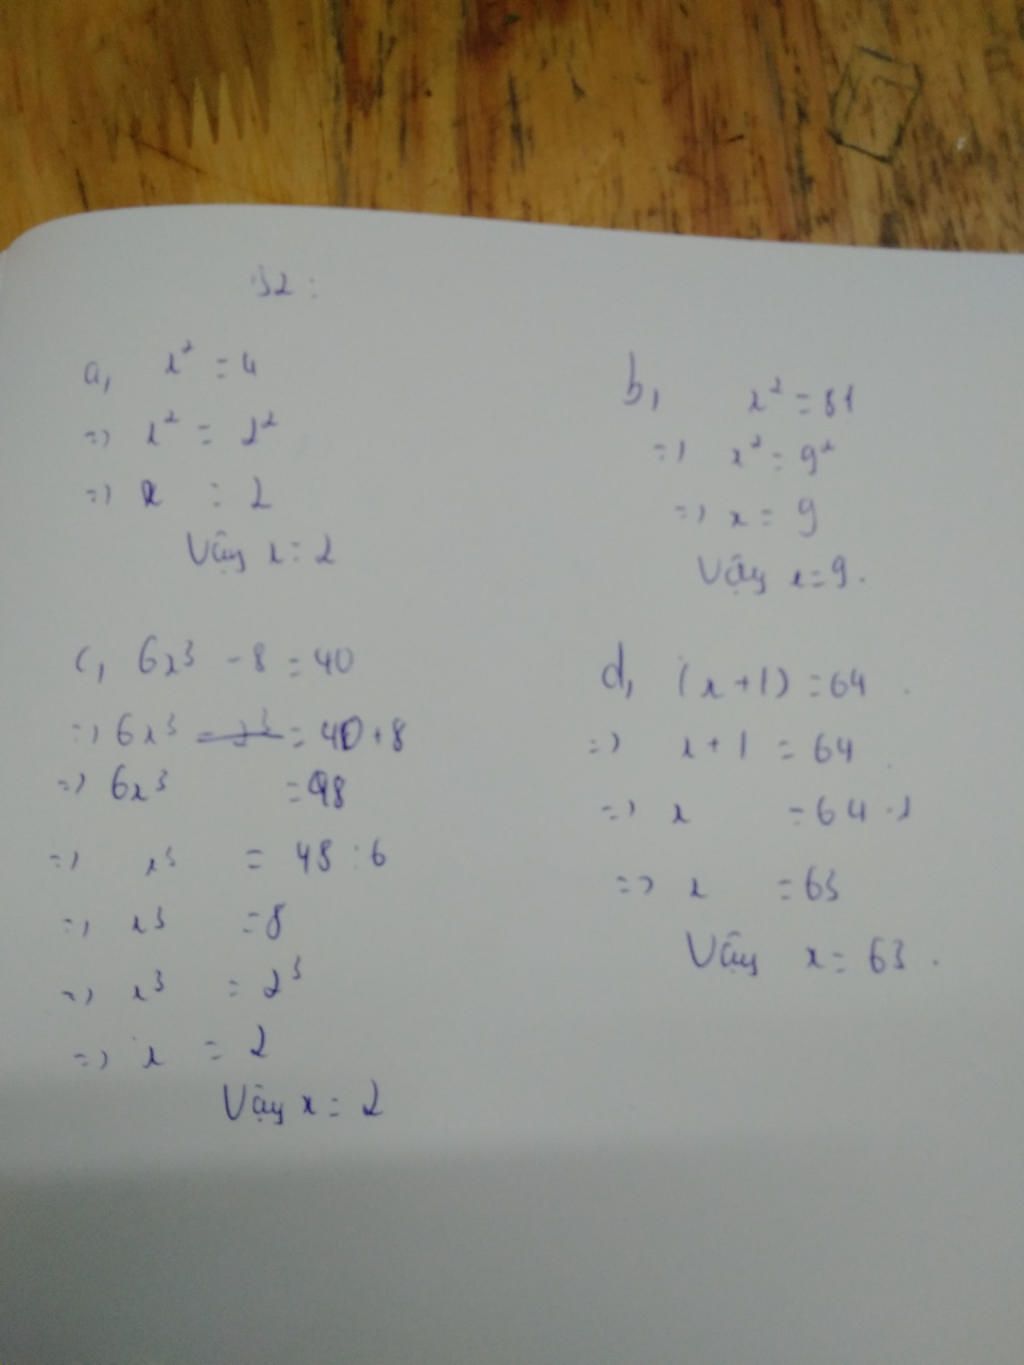 B2:
a, x² = 4
=> x² = 2²
=> x = 2
Vậy x = 2
b, x² = 81
=> x² = 9²
=> x = 9
Vậy x = 9.
c, 6x³ - 8 = 40
=> 6x³ = 40 + 8
=> 6x³ = 48
=> x³ = 48 : 6
=> x³ = 8
=> x³ = 2³
=> x = 2
Vậy x = 2
d, (x + 1) = 64
=> x + 1 = 64
=> x = 64 - 1
=> x = 63
Vậy x = 63.